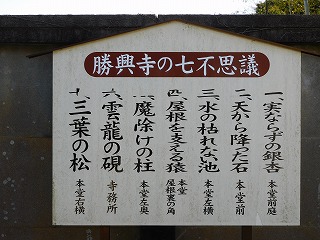 勝興寺の七不思議
一、実ならずの銀杏 本堂前庭
二、天から降た石 本堂前
三、水の枯れない池 本堂左横
四、屋根を支える猿 本堂屋根裏の角
五、魔除けの柱 本堂左奥
六、雲龍の硯 寺務所
七、三葉の松 本堂右横